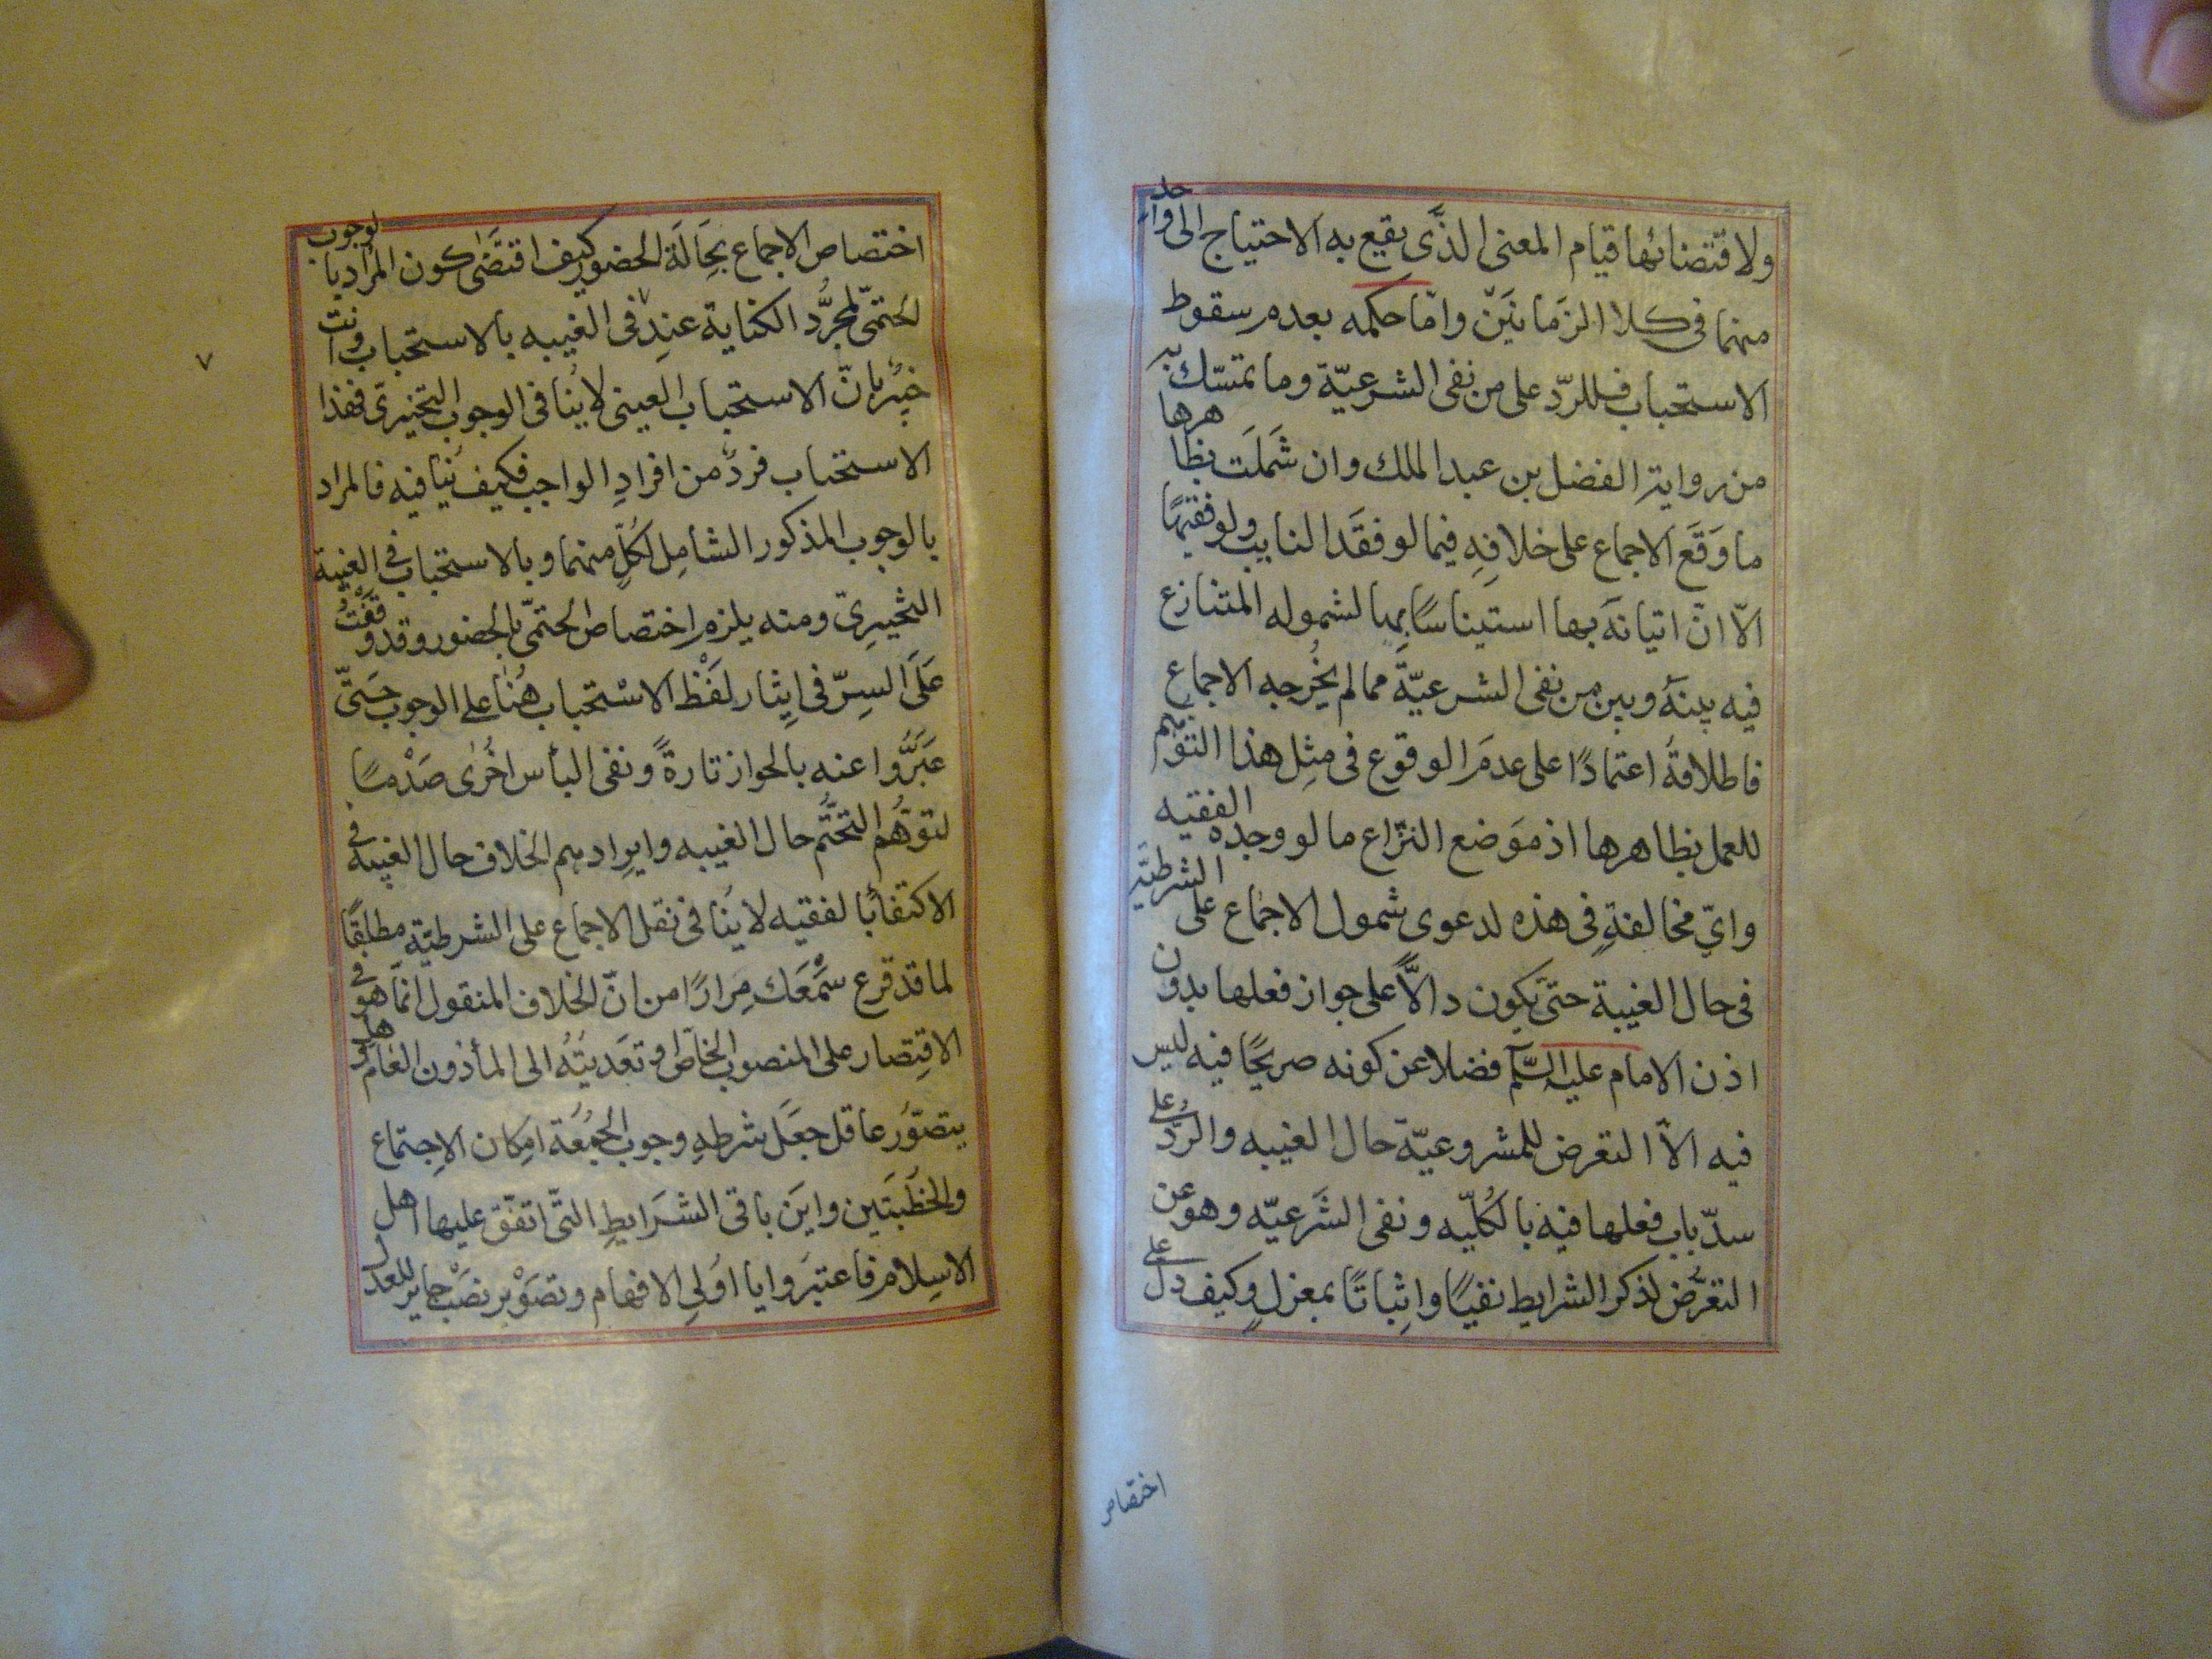 ولاقتضائها قيام المعنى الذَّى يقع به الاحتياج الى واحد
منهما فى كلا الزمانَيَنّ وامّا حكمه بعدم سقوط
الاستحباب فللردّ على من نفى الشرعيّة وما تمسّك به
من رواية الفضل بن عبد الملك وان شَمَلَت بظاهرها
ما وَقَع الاجماع على خلافِهِ فيما لو فقَد النايب ولو فقيهًا
الّا انّ اتيانَه بها استيناسًا بها لشموله المتنازع
فيه بينَهُ وبين من نفى الشرعيّة مما لم يُخرجه الاجماع
فاطلاقهُ اعتمادًا على عدمَ الوقوع فى مثِل هذا التوّهم
للعمل بظاهرها اذ موَضع النزّاع ما لو وجده الفقيه
وايّ مخالفةٍ فى هذه لدعوى شمول الاجماع على الشرطيّة
فى حال الغيبة حتىّ يكون دالاًّ على جواز فعلها بدون
اذن الامام عليه السَّلم فضلا عن كونه صريحًا فيه ليس
فيه الاّ التعرض للمشروعيّة حال الغيبه والردُّ على
سدّ باب فعلها فيه بالكُليّه ونفى الشَرعيّه وهو عن
التعرَّض لذكر الشرايط نفيًا واثِباتًا بمعزلٍ وكيف دلّ على
اختصاص
اختصاص الاجماع بحَِالَة الحضور كيف اقتضَٰى كون المراد بالوجوب
الحتمىّ لمجرَّد الكناية عندِ فى الغيبه بالاستحباب وانت
خبيٌر بانّ الاستحباب العينى لا يُنافى الوجوب التخيرىّ فهذا
الاستحباب فردٌ من افرادِ الواجب فكيف ينُافيه فالمراد
بالوجوب المذكور الشامِل لكُلّ منهما وبالاستحباب فى الغيبة
التخييرىّ ومنه يلزم اختصاص الحتمىّ بالحضور وقد وقَفْتُ
عَلَى السِرّ فى ايِثار لَفْظ الاسْتحباب هُنا على الوجوب حتىّ
عَبَرَّوُا عنه بالجواز تارةً ونفى البأس اخُرٰى صَدْمًا
لتوَهُّم التحَتُّم حال الغيبه وايرادهم الخلاف حال الغيبه فى
الاكتفاء بالفقيه لا ينُافى نقل الاجماع على الشرطيّة مطلقًا
لما قد قرع سَمْعَك مِرارًا من انّ الخلاف المنقول انمّا هو فى
الاقتِصار على المنصوب الخاصّ او تعَديَتهُ الى المأذون العامّ وهل
يتصوَّر عاقل جعَل شرطهِ وجوب الجُمُعة امِكان الاِجتماع
والخطَبَتَين واينَ باقى الشَرَايطِ التّى اتفّق عليها اهل
الاسِلام فاعتبَروا يا اوُلىِ الافهام وتصَوْير نصَْب جاير للعدل